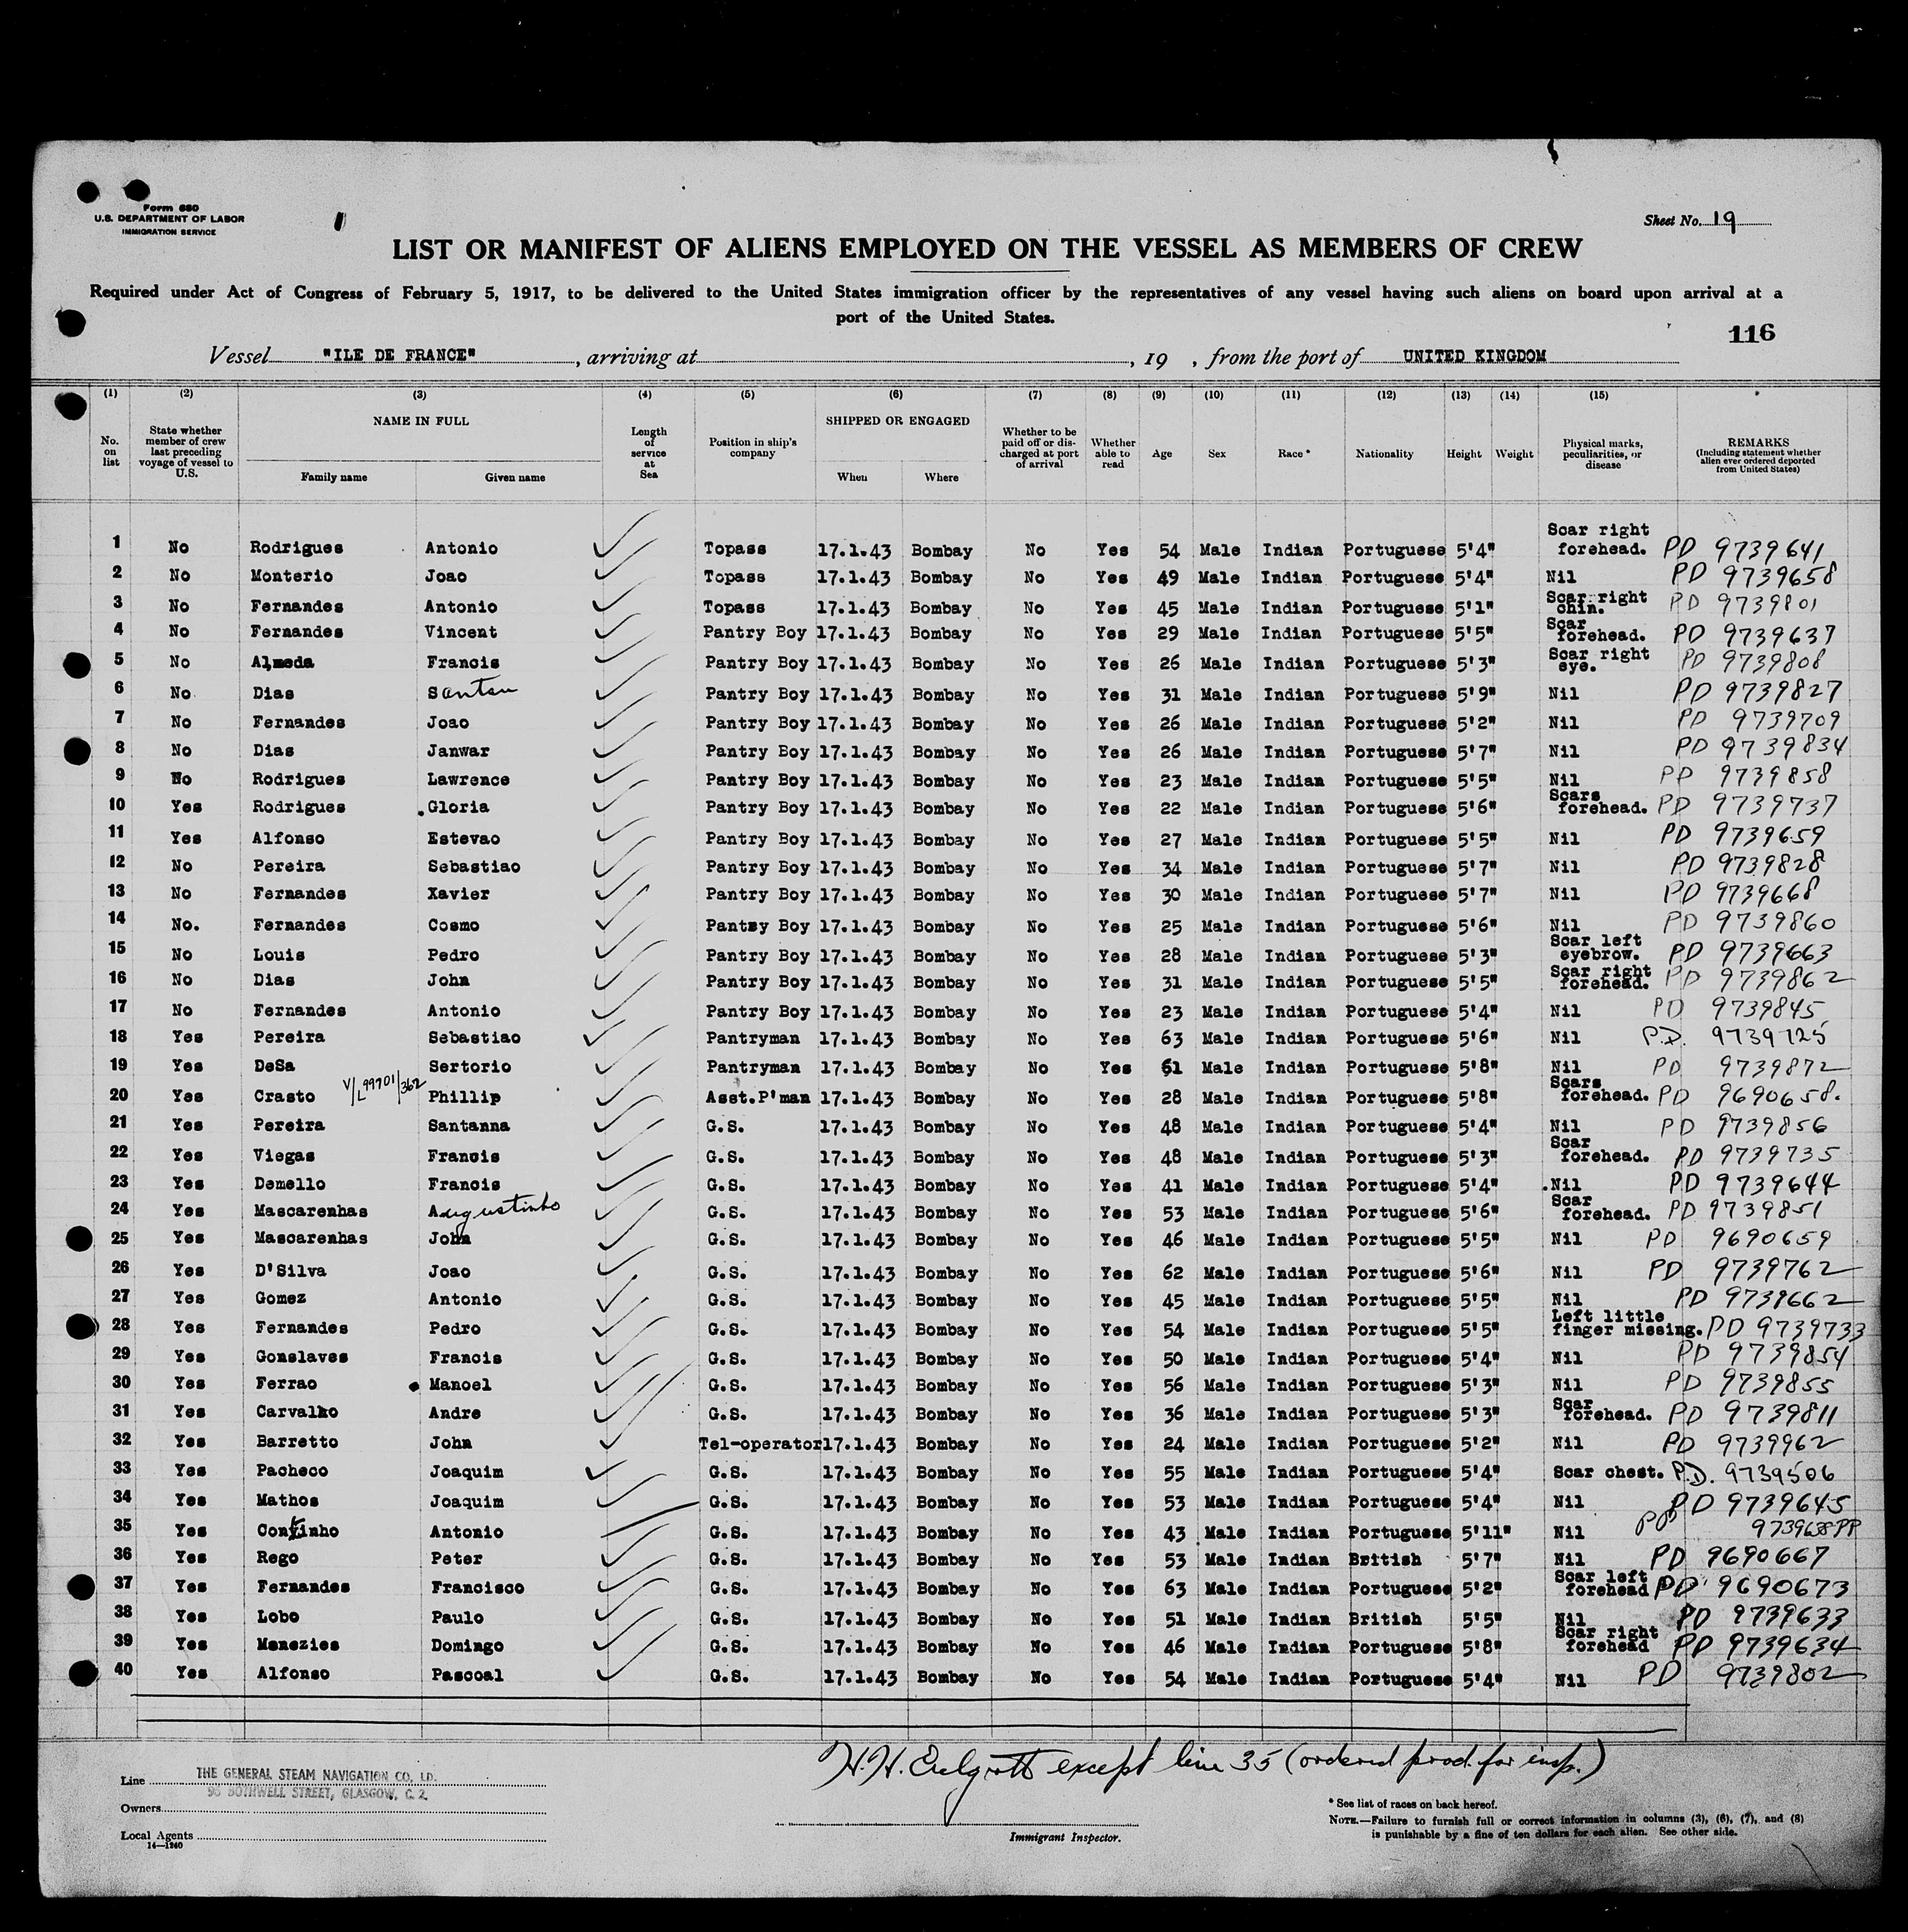 Form 680
U.S. DEPARTMENT OF LABOR
IMMIGRATION SERVICE
Sheet No. 19
LIST OR MANIFEST OF ALIENS EMPLOYED ON THE VESSEL AS MEMBERS OF CREW
Required under Act of Congress of February 5, 1917, to be delivered to the United States immigration officer by the representatives of any vessel having such aliens on board upon arrival at a
port of the United States.
116
Vessel "ILE DE FRANCE" , arriving at , 19 , from the port of UNITED KINGDOM
(1) (2) (3) (4) (5) (6) (7) (8) (9) (10) (11) (12) (13) (14) (15)
No. on list State whether member of crew last preceding voyage of vessel to U.S. NAME IN FULL Family name Given name Length of service at Sea Position in ship's company SHIPPED OR ENGAGED When Where Whether to be paid off or discharged at port of arrival Whether able to read Age Sex Race* Nationality Height Weight Physical marks, peculiarities, or disease REMARKS (Including statement whether alien ever ordered deported from United States)
1 No Rodrigues Antonio Topass 17.1.43 Bombay No Yes 54 Male Indian Portuguese 5'4" Scar right forehead. PD 9739641
2 No Monterio Joao Topass 17.1.43 Bombay No Yes 49 Male Indian Portuguese 5'4" Nil PD 9739658
3 No Fernandes Antonio Topass 17.1.43 Bombay No Yes 45 Male Indian Portuguese 5'1" Scar right chin. PD 9739801
4 No Fernandes Vincent Pantry Boy 17.1.43 Bombay No Yes 29 Male Indian Portuguese 5'5" Scar forehead. PD 9739637
5 No Almeda Francis Pantry Boy 17.1.43 Bombay No Yes 26 Male Indian Portuguese 5'3" Scar right eye. PD 9739808
6 No Dias Santan Pantry Boy 17.1.43 Bombay No Yes 31 Male Indian Portuguese 5'9" Nil PD 9739827
7 No Fernandes Joao Pantry Boy 17.1.43 Bombay No Yes 26 Male Indian Portuguese 5'2" Nil PD 9739709
8 No Dias Janwar Pantry Boy 17.1.43 Bombay No Yes 26 Male Indian Portuguese 5'7" Nil PD 9739834
9 No Rodrigues Lawrence Pantry Boy 17.1.43 Bombay No Yes 23 Male Indian Portuguese 5'5" Nil PD 9739858
10 Yes Rodrigues Gloria Pantry Boy 17.1.43 Bombay No Yes 22 Male Indian Portuguese 5'6" Scars forehead. PD 9739737
11 Yes Alfonso Estevao Pantry Boy 17.1.43 Bombay No Yes 27 Male Indian Portuguese 5'5" Nil PD 9739659
12 No Pereira Sebastiao Pantry Boy 17.1.43 Bombay No Yes 34 Male Indian Portuguese 5'7" Nil PD 9739828
13 No Fernandes Xavier Pantry Boy 17.1.43 Bombay No Yes 30 Male Indian Portuguese 5'7" Nil PD 9739668
14 No. Fernandes Cosmo Pantry Boy 17.1.43 Bombay No Yes 25 Male Indian Portuguese 5'6" Nil PD 9739860
15 No Louis Pedro Pantry Boy 17.1.43 Bombay No Yes 28 Male Indian Portuguese 5'3" Scar left eyebrow. PD 9739663
16 No Dias John Pantry Boy 17.1.43 Bombay No Yes 31 Male Indian Portuguese 5'5" Scar right forehead. PD 9739862
17 No Fernandes Antonio Pantry Boy 17.1.43 Bombay No Yes 23 Male Indian Portuguese 5'4" Nil PD 9739845
18 Yes Pereira Sebastiao Pantryman 17.1.43 Bombay No Yes 63 Male Indian Portuguese 5'6" Nil P.D. 9739725
19 Yes DeSa Sertorio Pantryman 17.1.43 Bombay No Yes 61 Male Indian Portuguese 5'8" Nil PD 9739872
20 Yes Crasto V/L 99701/362 Phillip Asst.P'man 17.1.43 Bombay No Yes 28 Male Indian Portuguese 5'8" Scars forehead. PD 9690658.
21 Yes Pereira Santanna G.S. 17.1.43 Bombay No Yes 48 Male Indian Portuguese 5'4" Nil PD 9739856
22 Yes Viegas Francis G.S. 17.1.43 Bombay No Yes 48 Male Indian Portuguese 5'3" Scar forehead. PD 9739735
23 Yes Demello Francis G.S. 17.1.43 Bombay No Yes 41 Male Indian Portuguese 5'4" Nil PD 9739644
24 Yes Mascarenhas Augustinho G.S. 17.1.43 Bombay No Yes 53 Male Indian Portuguese 5'6" Scar forehead. PD 9739851
25 Yes Mascarenhas John G.S. 17.1.43 Bombay No Yes 46 Male Indian Portuguese 5'5" Nil PD 9690659
26 Yes D'Silva Joao G.S. 17.1.43 Bombay No Yes 62 Male Indian Portuguese 5'6" Nil PD 9739762
27 Yes Gomez Antonio G.S. 17.1.43 Bombay No Yes 45 Male Indian Portuguese 5'5" Nil PD 9739662
28 Yes Fernandes Pedro G.S. 17.1.43 Bombay No Yes 54 Male Indian Portuguese 5'5" Left little finger missing. PD 9739733
29 Yes Gonslaves Francis G.S. 17.1.43 Bombay No Yes 50 Male Indian Portuguese 5'4" Nil PD 9739854
30 Yes Ferrao Manoel G.S. 17.1.43 Bombay No Yes 56 Male Indian Portuguese 5'3" Nil PD 9739855
31 Yes Carvalho Andre G.S. 17.1.43 Bombay No Yes 36 Male Indian Portuguese 5'3" Scar forehead. PD 9739811
32 Yes Barretto John Tel-operator 17.1.43 Bombay No Yes 24 Male Indian Portuguese 5'2" Nil PD 9739962
33 Yes Pacheco Joaquim G.S. 17.1.43 Bombay No Yes 55 Male Indian Portuguese 5'4" Scar chest. P.D. 9739506
34 Yes Mathos Joaquim G.S. 17.1.43 Bombay No Yes 53 Male Indian Portuguese 5'4" Nil PD 9739645
35 Yes Continho Antonio G.S. 17.1.43 Bombay No Yes 43 Male Indian Portuguese 5'11" Nil PP 9739638 PP
36 Yes Rego Peter G.S. 17.1.43 Bombay No Yes 53 Male Indian British 5'7" Nil PD 9690667
37 Yes Fernandes Francisco G.S. 17.1.43 Bombay No Yes 63 Male Indian Portuguese 5'2" Scar left forehead PD 9690673
38 Yes Lobo Paulo G.S. 17.1.43 Bombay No Yes 51 Male Indian British 5'5" Nil PD 9739633
39 Yes Menezies Domingo G.S. 17.1.43 Bombay No Yes 46 Male Indian Portuguese 5'8" Scar right forehead PD 9739634
40 Yes Alfonso Pascoal G.S. 17.1.43 Bombay No Yes 54 Male Indian Portuguese 5'4" Nil PD 9739802
H.H. except line 35 (ordered prod. for insp.)
Line THE GENERAL STEAM NAVIGATION CO. LD.
98 BOTHWELL STREET, GLASGOW, C. 2.
Owners
Local Agents
14—1240
Immigrant Inspector.
* See list of races on back hereof.
NOTE.—Failure to furnish full or correct information in columns (3), (6), (7), and (8)
is punishable by a fine of ten dollars for each alien. See other side.